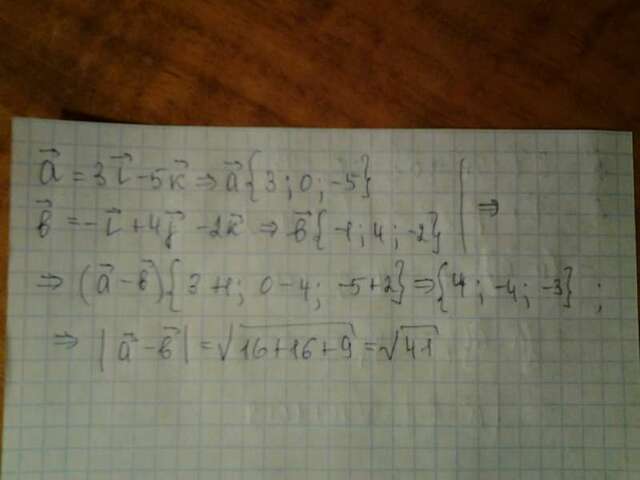 a⃗ = 3i⃗ - 5k⃗ ⇒ a⃗{3; 0; -5}
b⃗ = -i⃗ + 4j⃗ - 2k⃗ ⇒ b⃗{-1; 4; -2} | ⇒
⇒ (a⃗ - b⃗){3+1; 0-4; -5+2} ⇒ {4; -4; -3};
⇒ |a⃗ - b⃗| = √(16+16+9) = √41